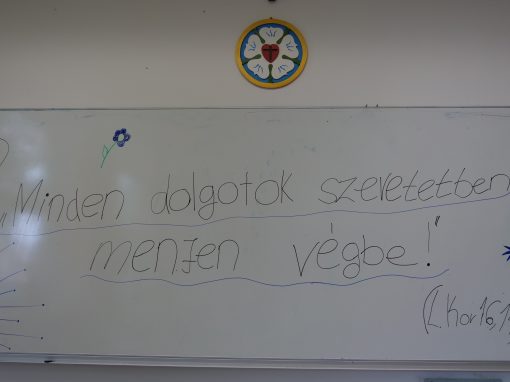 „Minden dolgotok szeretetben
menjen végbe!"
(I. Kor 16,1